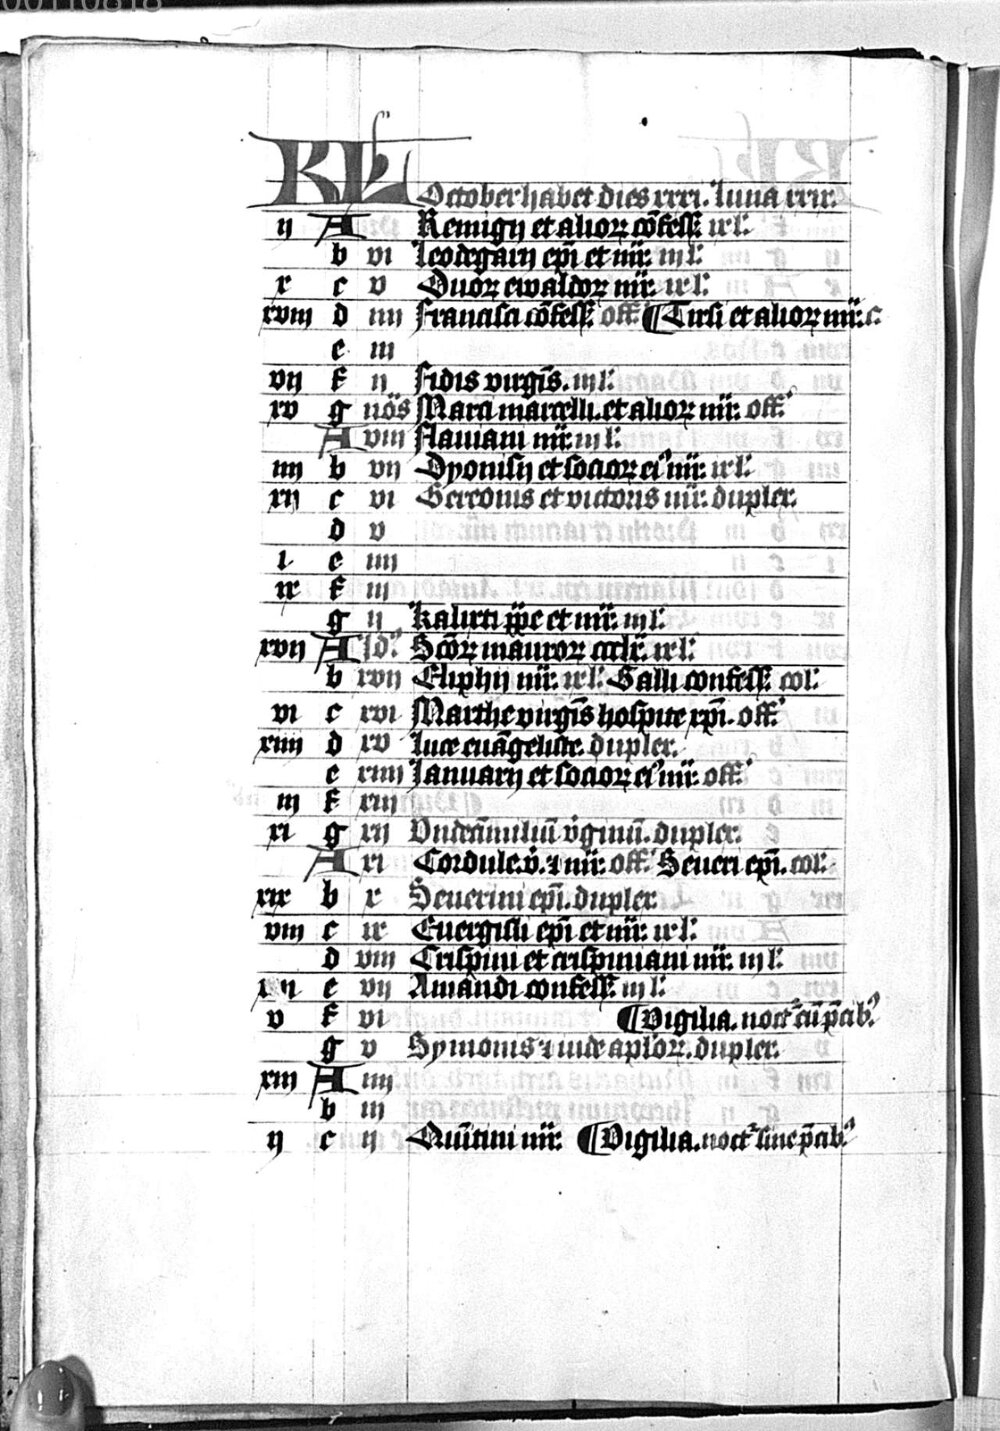 00110818
KL October habet dies xxxi. luna xxix.
ij A Remigij et alior confess. ix l.
b vi leodegarij epi et mr. iij l.
x c v Duor ewaldor mr. ix l.
xviij d iiij Francisci confess. off. Tirsi et alior mr. c
e iij
vij f ij Fidis virgis. iij l.
xv g nos Marci marcelli. et alior mr. off.
A viij Flaviani mr. iij l.
iiij b vij Dyonisij et socior ei mr. ix l.
xij c vi Gereonis et victoris mr. duplex.
d v
i e iiij
ix f iij
g ij kalixti ppe et mr. iij l.
xvij A Id. Scor mauror ccclx. ix l.
b xvij Eliphij mr. ix l. Galli confess. col.
vi c xvi Marthe virgis hospite xpi. off.
xiiij d xv luce euangeliste. duplex.
e xiiij Januarij et socior ei mr. off.
iij f xiij
xi g xij Undecimiliu virginu. duplex.
A xi Cordule. v. et mr. off. Seueri epi. col.
xix b x Seuerini epi. duplex
viij c ix Euergisli epi et mr. ix l.
d viij Crispini et crispiniani mr. iij l.
xvi e vij Amandi confess. iij l.
v f vi Vigilia. noct cu pcib.
g v Symonis et iude aplor. duplex.
xiij A iiij
b iij
ij c ij Quintini mr. Vigilia. noct sine pcib.